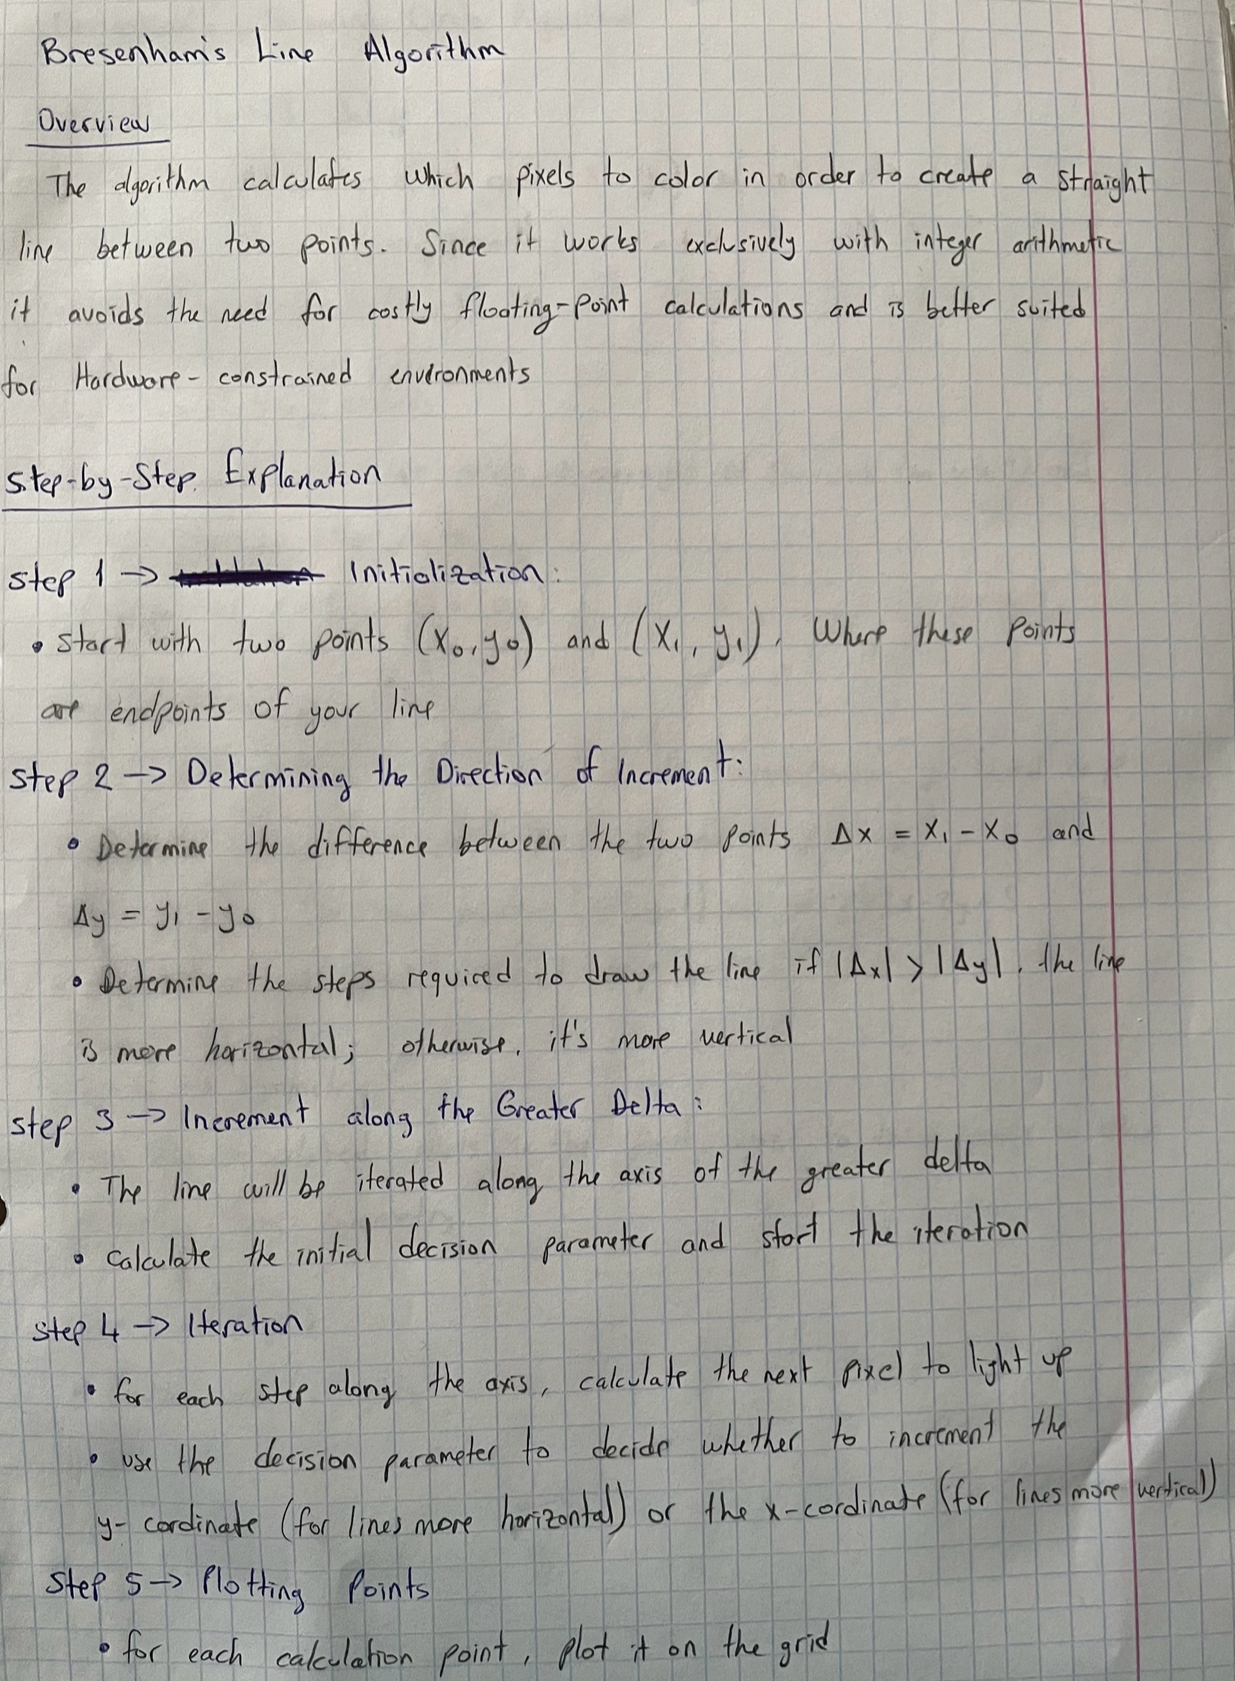 Bresenham's Line Algorithm
Overview
The algorithm calculates which pixels to color in order to create a straight
line between two points. Since it works exclusively with integer arithmetic
it avoids the need for costly floating-point calculations and is better suited
for Hardware-constrained environments
Step-by-Step Explanation
Step 1 → Initialization:
• Start with two points (x₀, y₀) and (x₁, y₁). Where these points
are endpoints of your line
Step 2 → Determining the Direction of Increment:
• Determine the difference between the two points Δx = x₁ - x₀ and
Δy = y₁ - y₀
• Determine the steps required to draw the line if |Δx| > |Δy|, the line
is more horizontal; otherwise, it's more vertical
Step 3 → Increment along the Greater Delta:
• The line will be iterated along the axis of the greater delta
• Calculate the initial decision parameter and start the iteration
Step 4 → Iteration
• for each step along the axis, calculate the next pixel to light up
• use the decision parameter to decide whether to increment the
y-cordinate (for lines more horizontal) or the x-cordinate (for lines more vertical)
Step 5 → Plotting Points
• for each calculation point, plot it on the grid